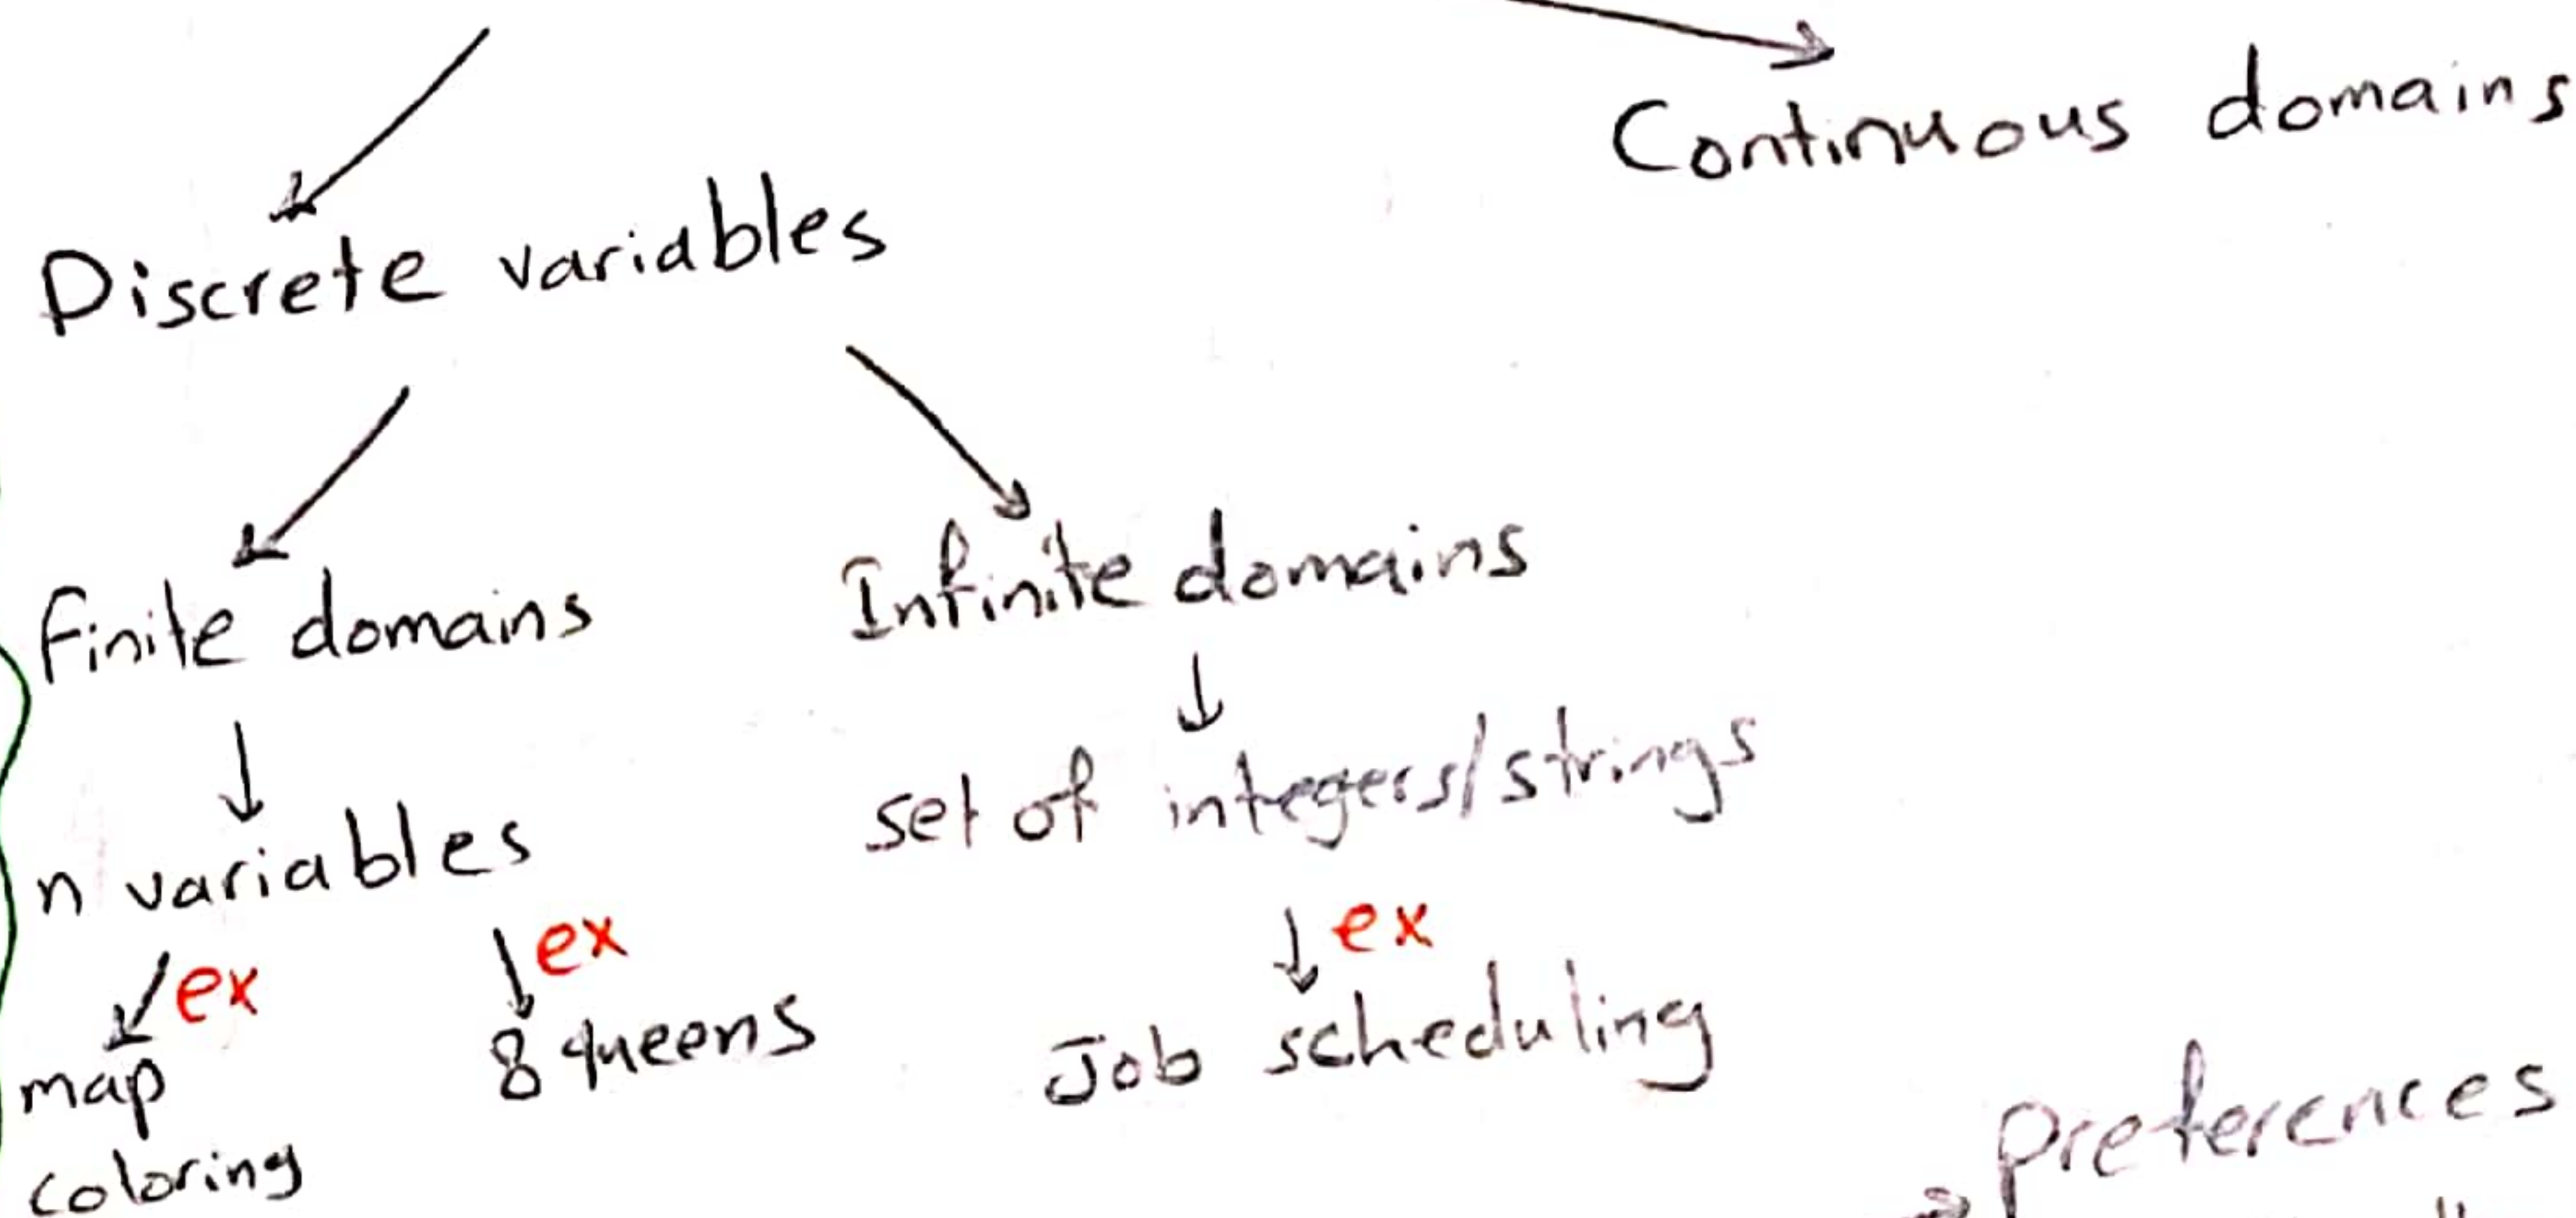 Continuous domains
Discrete variables
finite domains
Infinite domains
n variables
set of integers/strings
ex
ex
ex
map
coloring
8 queens
Job scheduling
Preferences